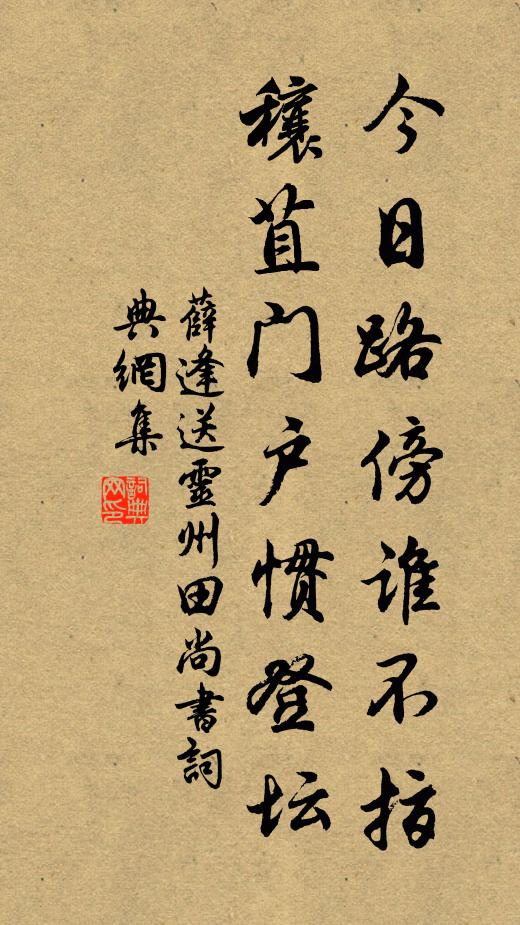 今日路傍谁不指
穰苴门户惯登坛
薛逢送靈州田尚書詞
典網集
詞典网印